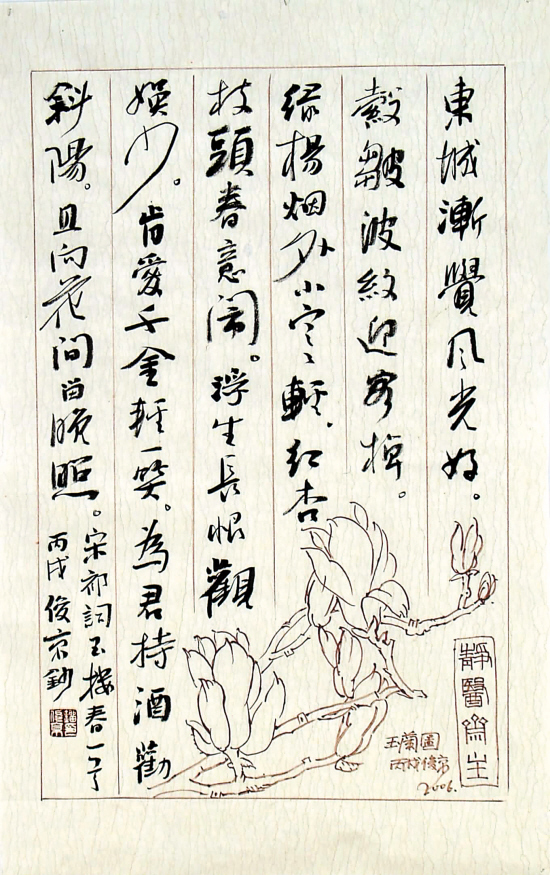 東城漸覺風光好。
縠皺波紋迎客棹。
綠楊烟外小寒輕。紅杏
枝頭春意鬧。浮生長恨觀
娛少。肯愛千金輕一笑。為君持酒勸
斜陽。且向花間留晚照。
宋祁詞玉樓春一
丙戌俊京鈔
玉蘭圖
丙戌俊京
2006.